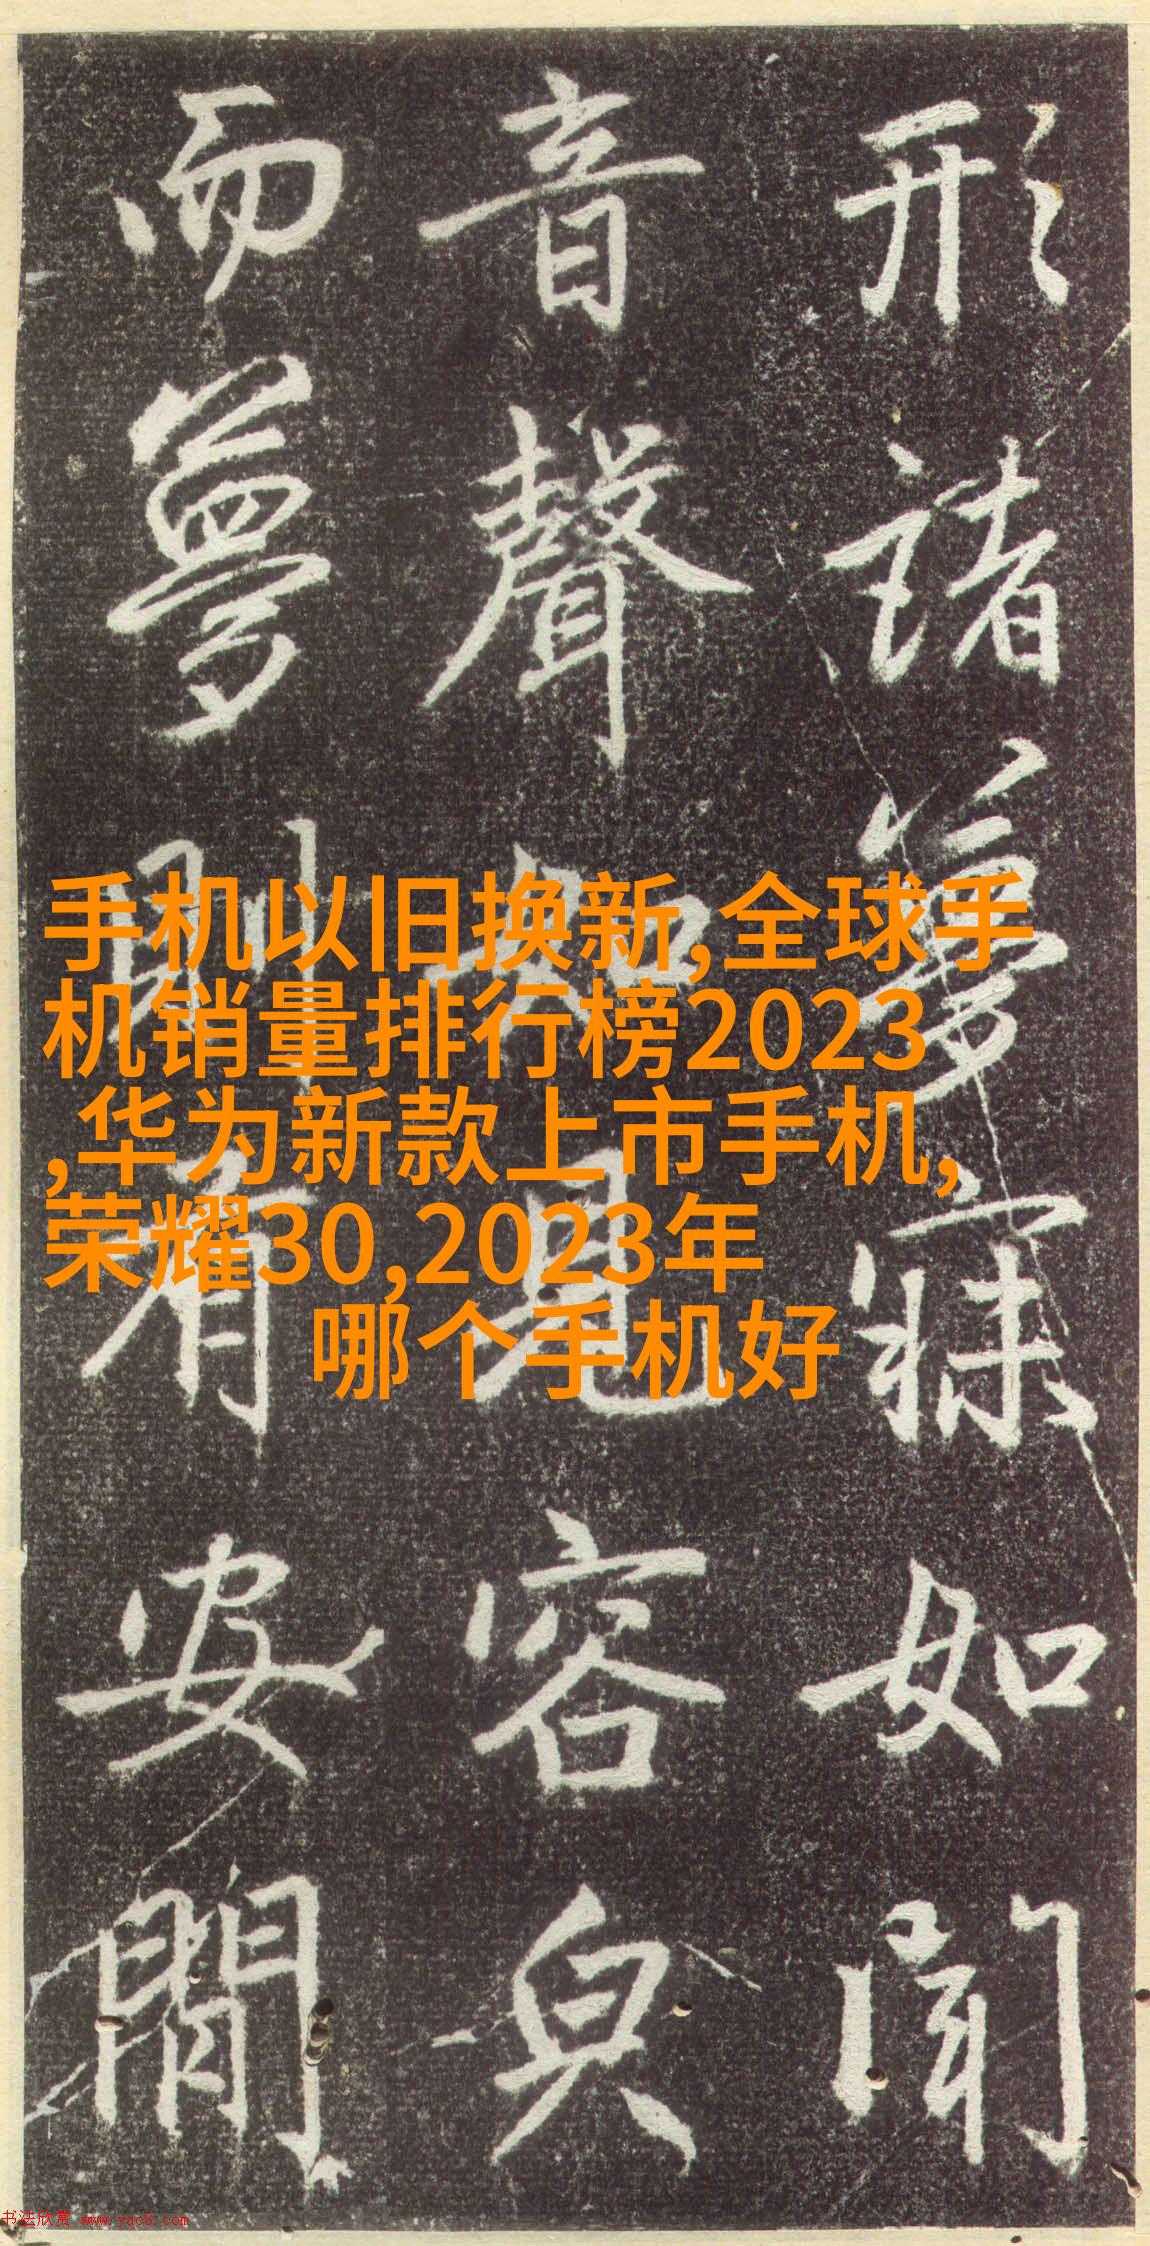 形諸夢寐如聞
音聲如見容皃
而夢則有安閒
手机以旧换新,全球手
机销量排行榜2023
,华为新款上市手机,
荣耀30,2023年
哪个手机好
书法欣赏 www.yac8.com